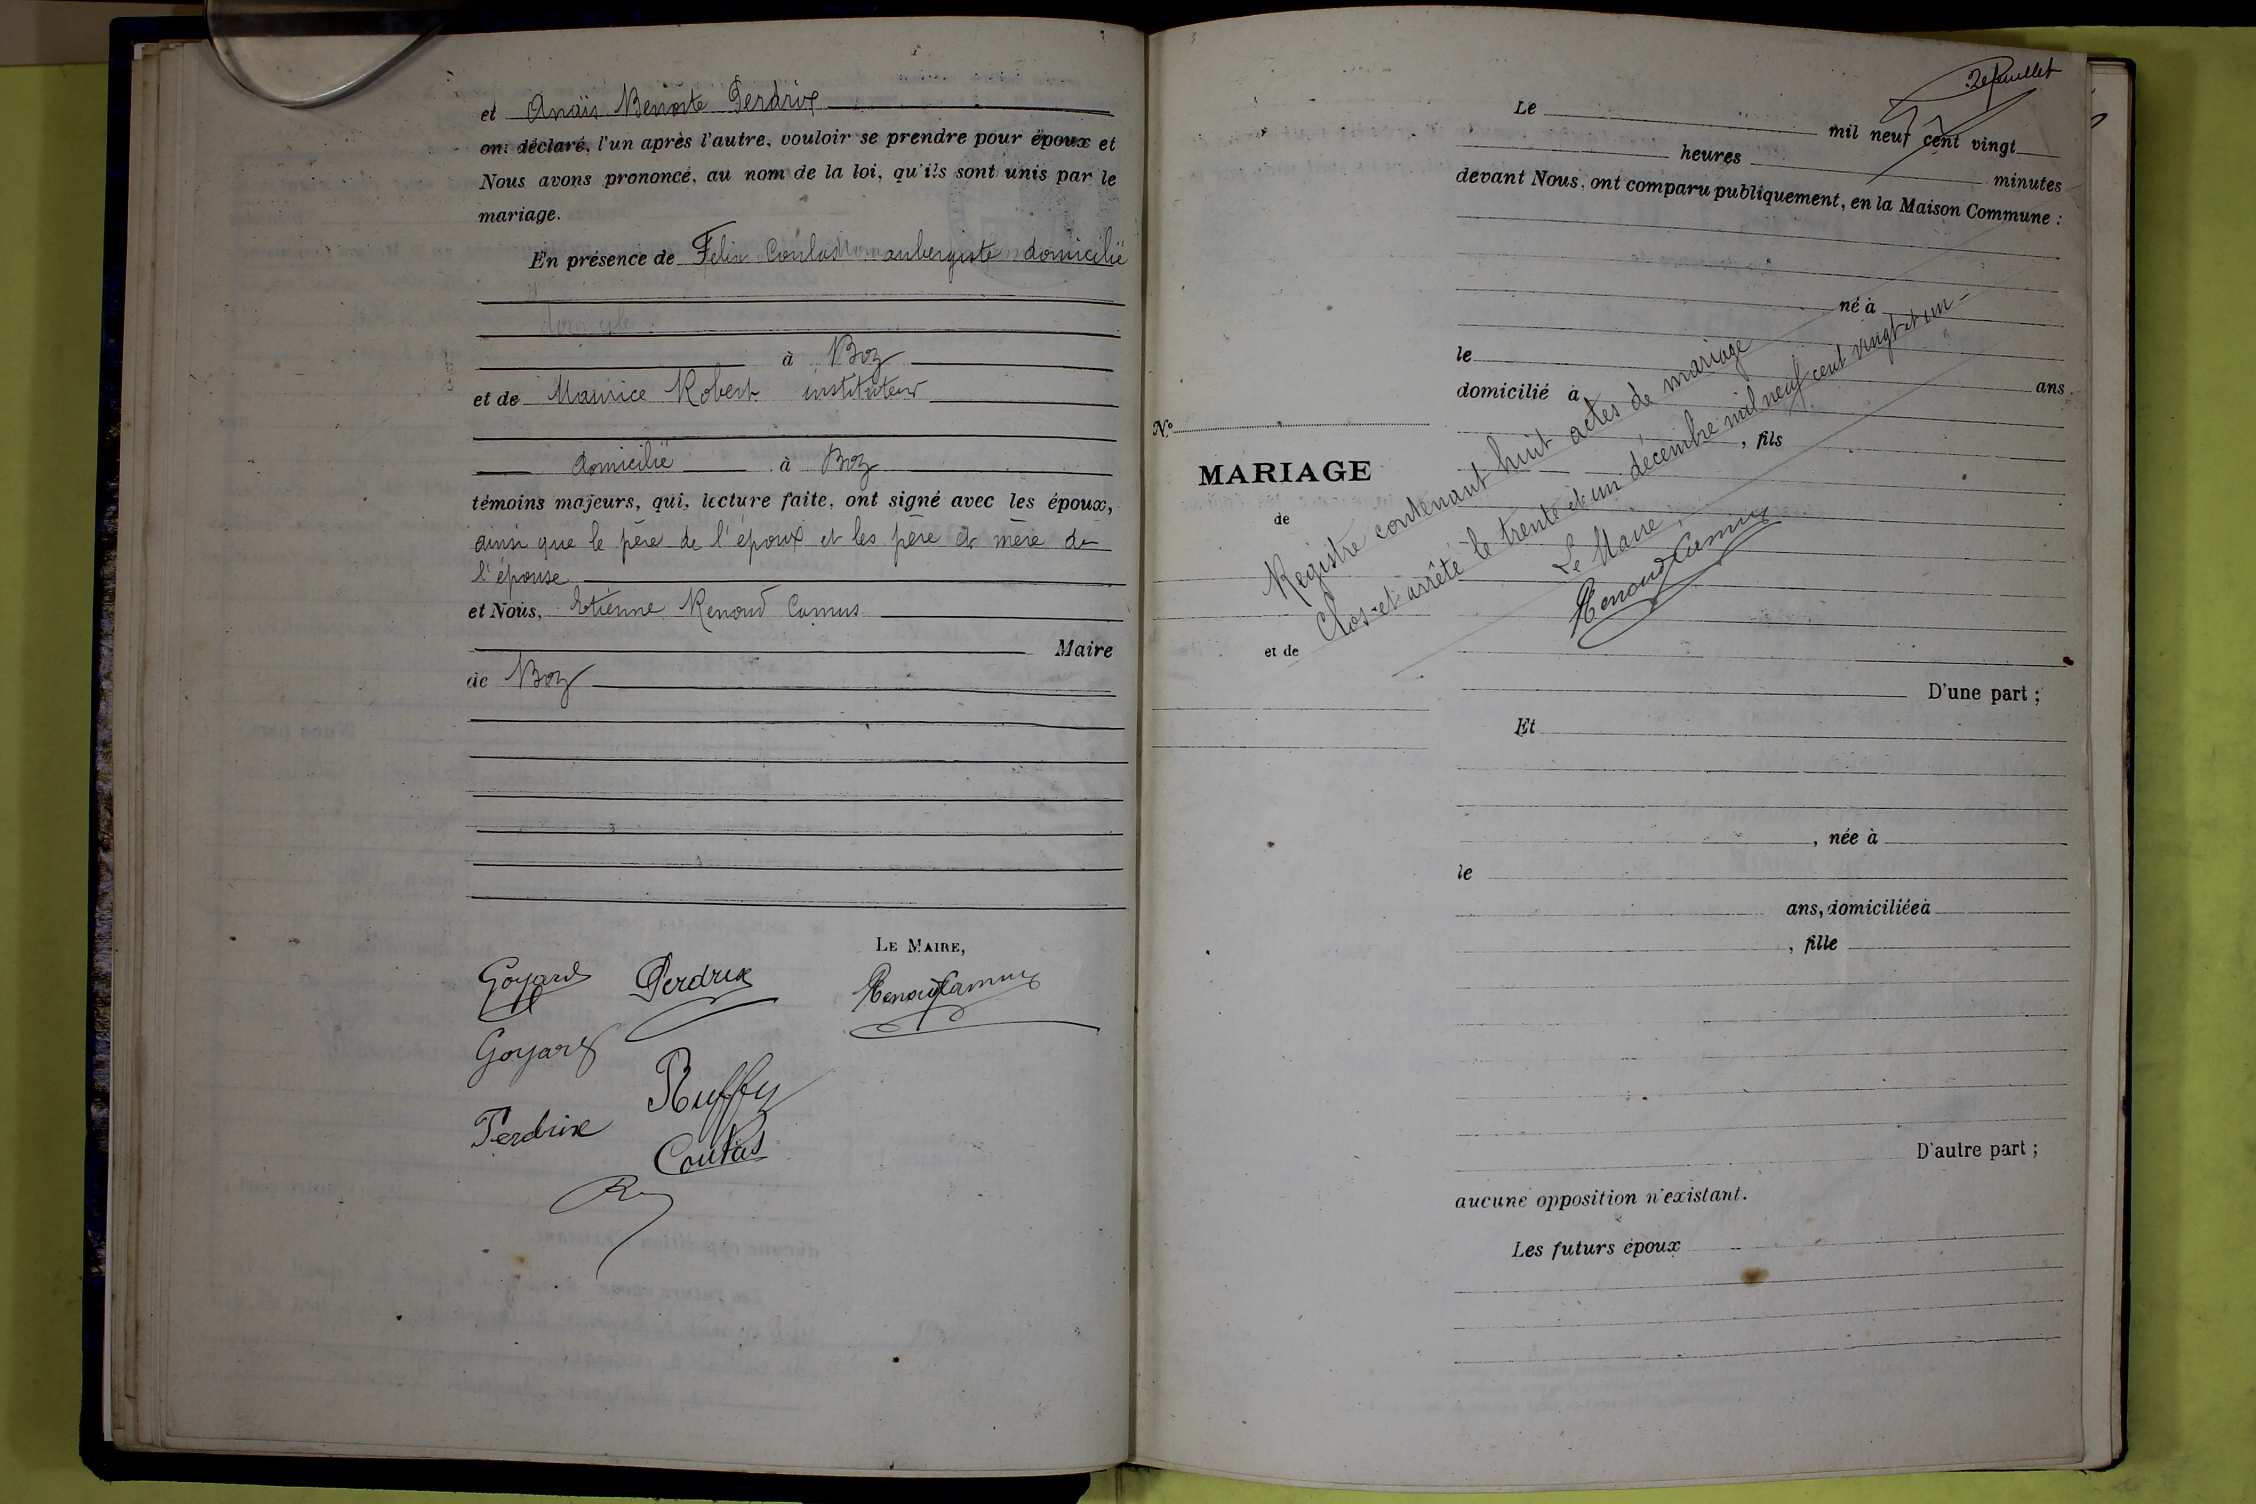 et Anaïs Benoîte Perdrix
ont déclaré, l'un après l'autre, vouloir se prendre pour époux et
Nous avons prononcé, au nom de la loi, qu'ils sont unis par le
mariage.
En présence de Felix aubergiste domicilié
à Boz
et de Maurice Robert instituteur
domicilié à Boz
témoins majeurs, qui, lecture faite, ont signé avec les époux,
ainsi que le père de l'époux et les père et mère de
l'épouse
et Nous, Etienne Renoud Camus
Maire
de Boz
LE MAIRE,
Goyard Perdrix RenoudCamus
Goyard
Ruffy
Perdrix
feuillet
Le mil neuf cent vingt
heures minutes
devant Nous, ont comparu publiquement, en la Maison Commune :
né à
le
domicilié à ans
, fils
N°
MARIAGE
de
et de
Registre contenant huit actes de mariage
Clos et arrêté le trente et un décembre mil neuf cent vingt et un
Le Maire
RenoudCamus
D'une part ;
Et
, née à
le
ans, domiciliée à
, fille
D'autre part ;
aucune opposition n'existant.
Les futurs époux